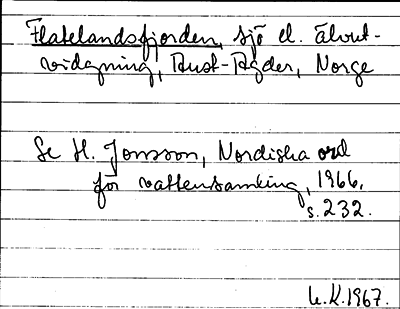 Flatelandsfjorden, sjö el. älvut-
vidgning, Aust-Agder, Norge
Se H. Jonsson, Nordiska ord
för vattensamling, 1966,
s. 232.
U.K. 1967.